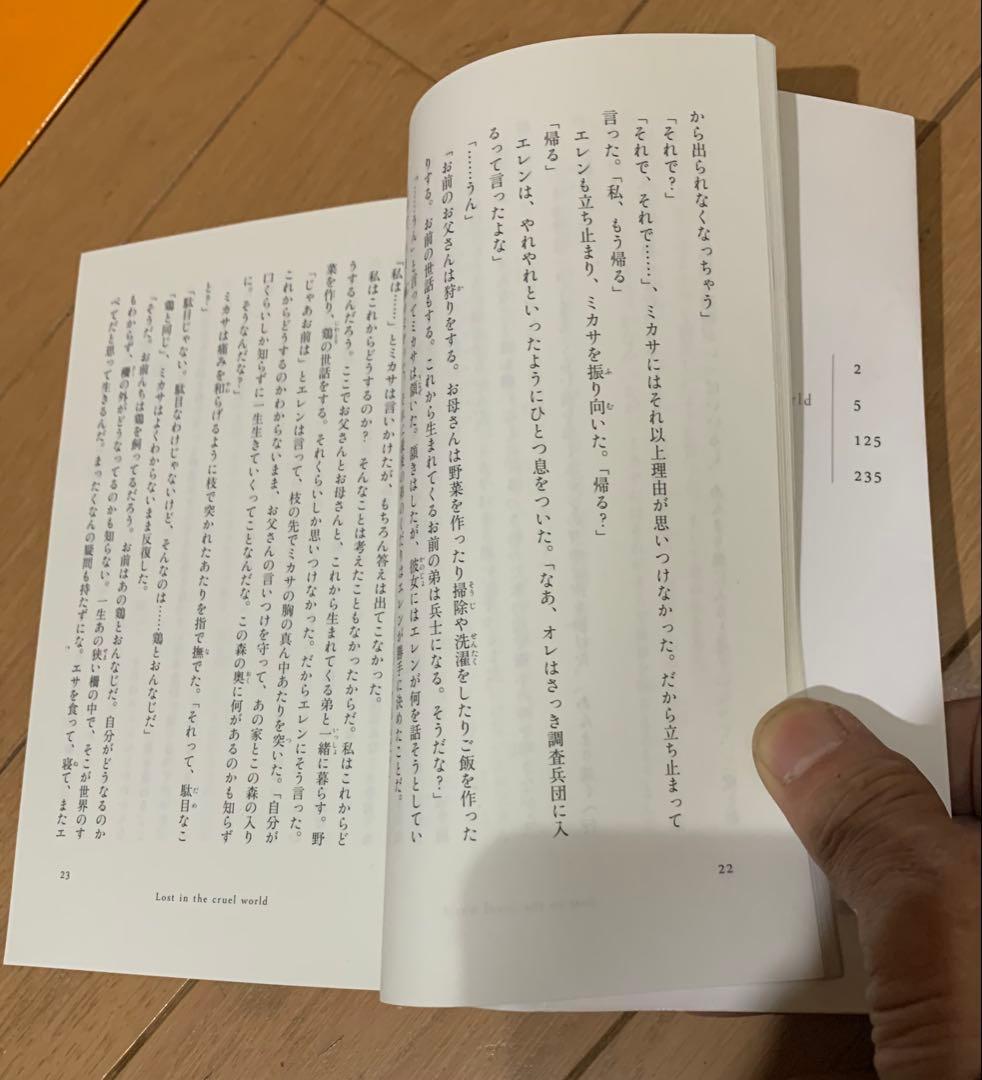 から出られなくなっちゃう」
「それで?」
「それで、それで……」、ミカサにはそれ以上理由が思いつけなかった。だから立ち止まって
言った。「私、もう帰る」
エレンも立ち止まり、ミカサを振り向いた。「帰る?」
「帰る」
エレンは、やれやれといったようにひとつ息をついた。「なあ、オレはさっき調査兵団に入
るって言ったよな」
「……うん」
「お前のお父さんは狩りをする。お母さんは野菜を作ったり掃除や洗濯をしたりご飯を作った
りする。お前の世話もする。これから生まれてくるお前の弟は兵士になる。そうだな?」
「……うん」と言ってミカサは頷いた。頷きはしたが、彼女にはエレンが何を話そうとしてい
はエレンが勝手に決めたことだ。
22
「私は……」とミカサは言いかけたが、もちろん答えは出てこなかった。
私はこれからどうするのか? そんなことは考えたこともなかったからだ。私はこれからど
うするんだろう。ここでお父さんとお母さんと、これから生まれてくる弟と一緒に暮らす。野
菜を作り、鶏の世話をする。それくらいしか思いつけなかった。だからエレンにそう言った。
「じゃあお前は」とエレンは言って、枝の先でミカサの胸の真ん中あたりを突いた。「自分が
これからどうするのかわからないまま、お父さんの言いつけを守って、あの家とこの森の入り
口くらいしか知らずに一生生きていくってことなんだな。この森の奥に何があるのかも知らず
に。そうなんだな?」
ミカサは痛みを和らげるように枝で突かれたあたりを指で撫でた。「それって、駄目なこ
と?」
「駄目じゃない。駄目なわけじゃないけど、そんなのは……鶏とおんなじだ」
「鶏と同じ」、ミカサはよくわからないまま反復した。
「そうだ。お前んちは鶏を飼ってるだろう。お前はあの鶏とおんなじだ。自分がどうなるのか
もわからず、柵の外がどうなってるのかも知らない。一生あの狭い柵の中で、そこが世界のす
べてだと思って生きるんだ。まったくなんの疑問も持たずにな。エサを食って、寝て、またエ
23
Lost in the cruel world
2
5
125
235